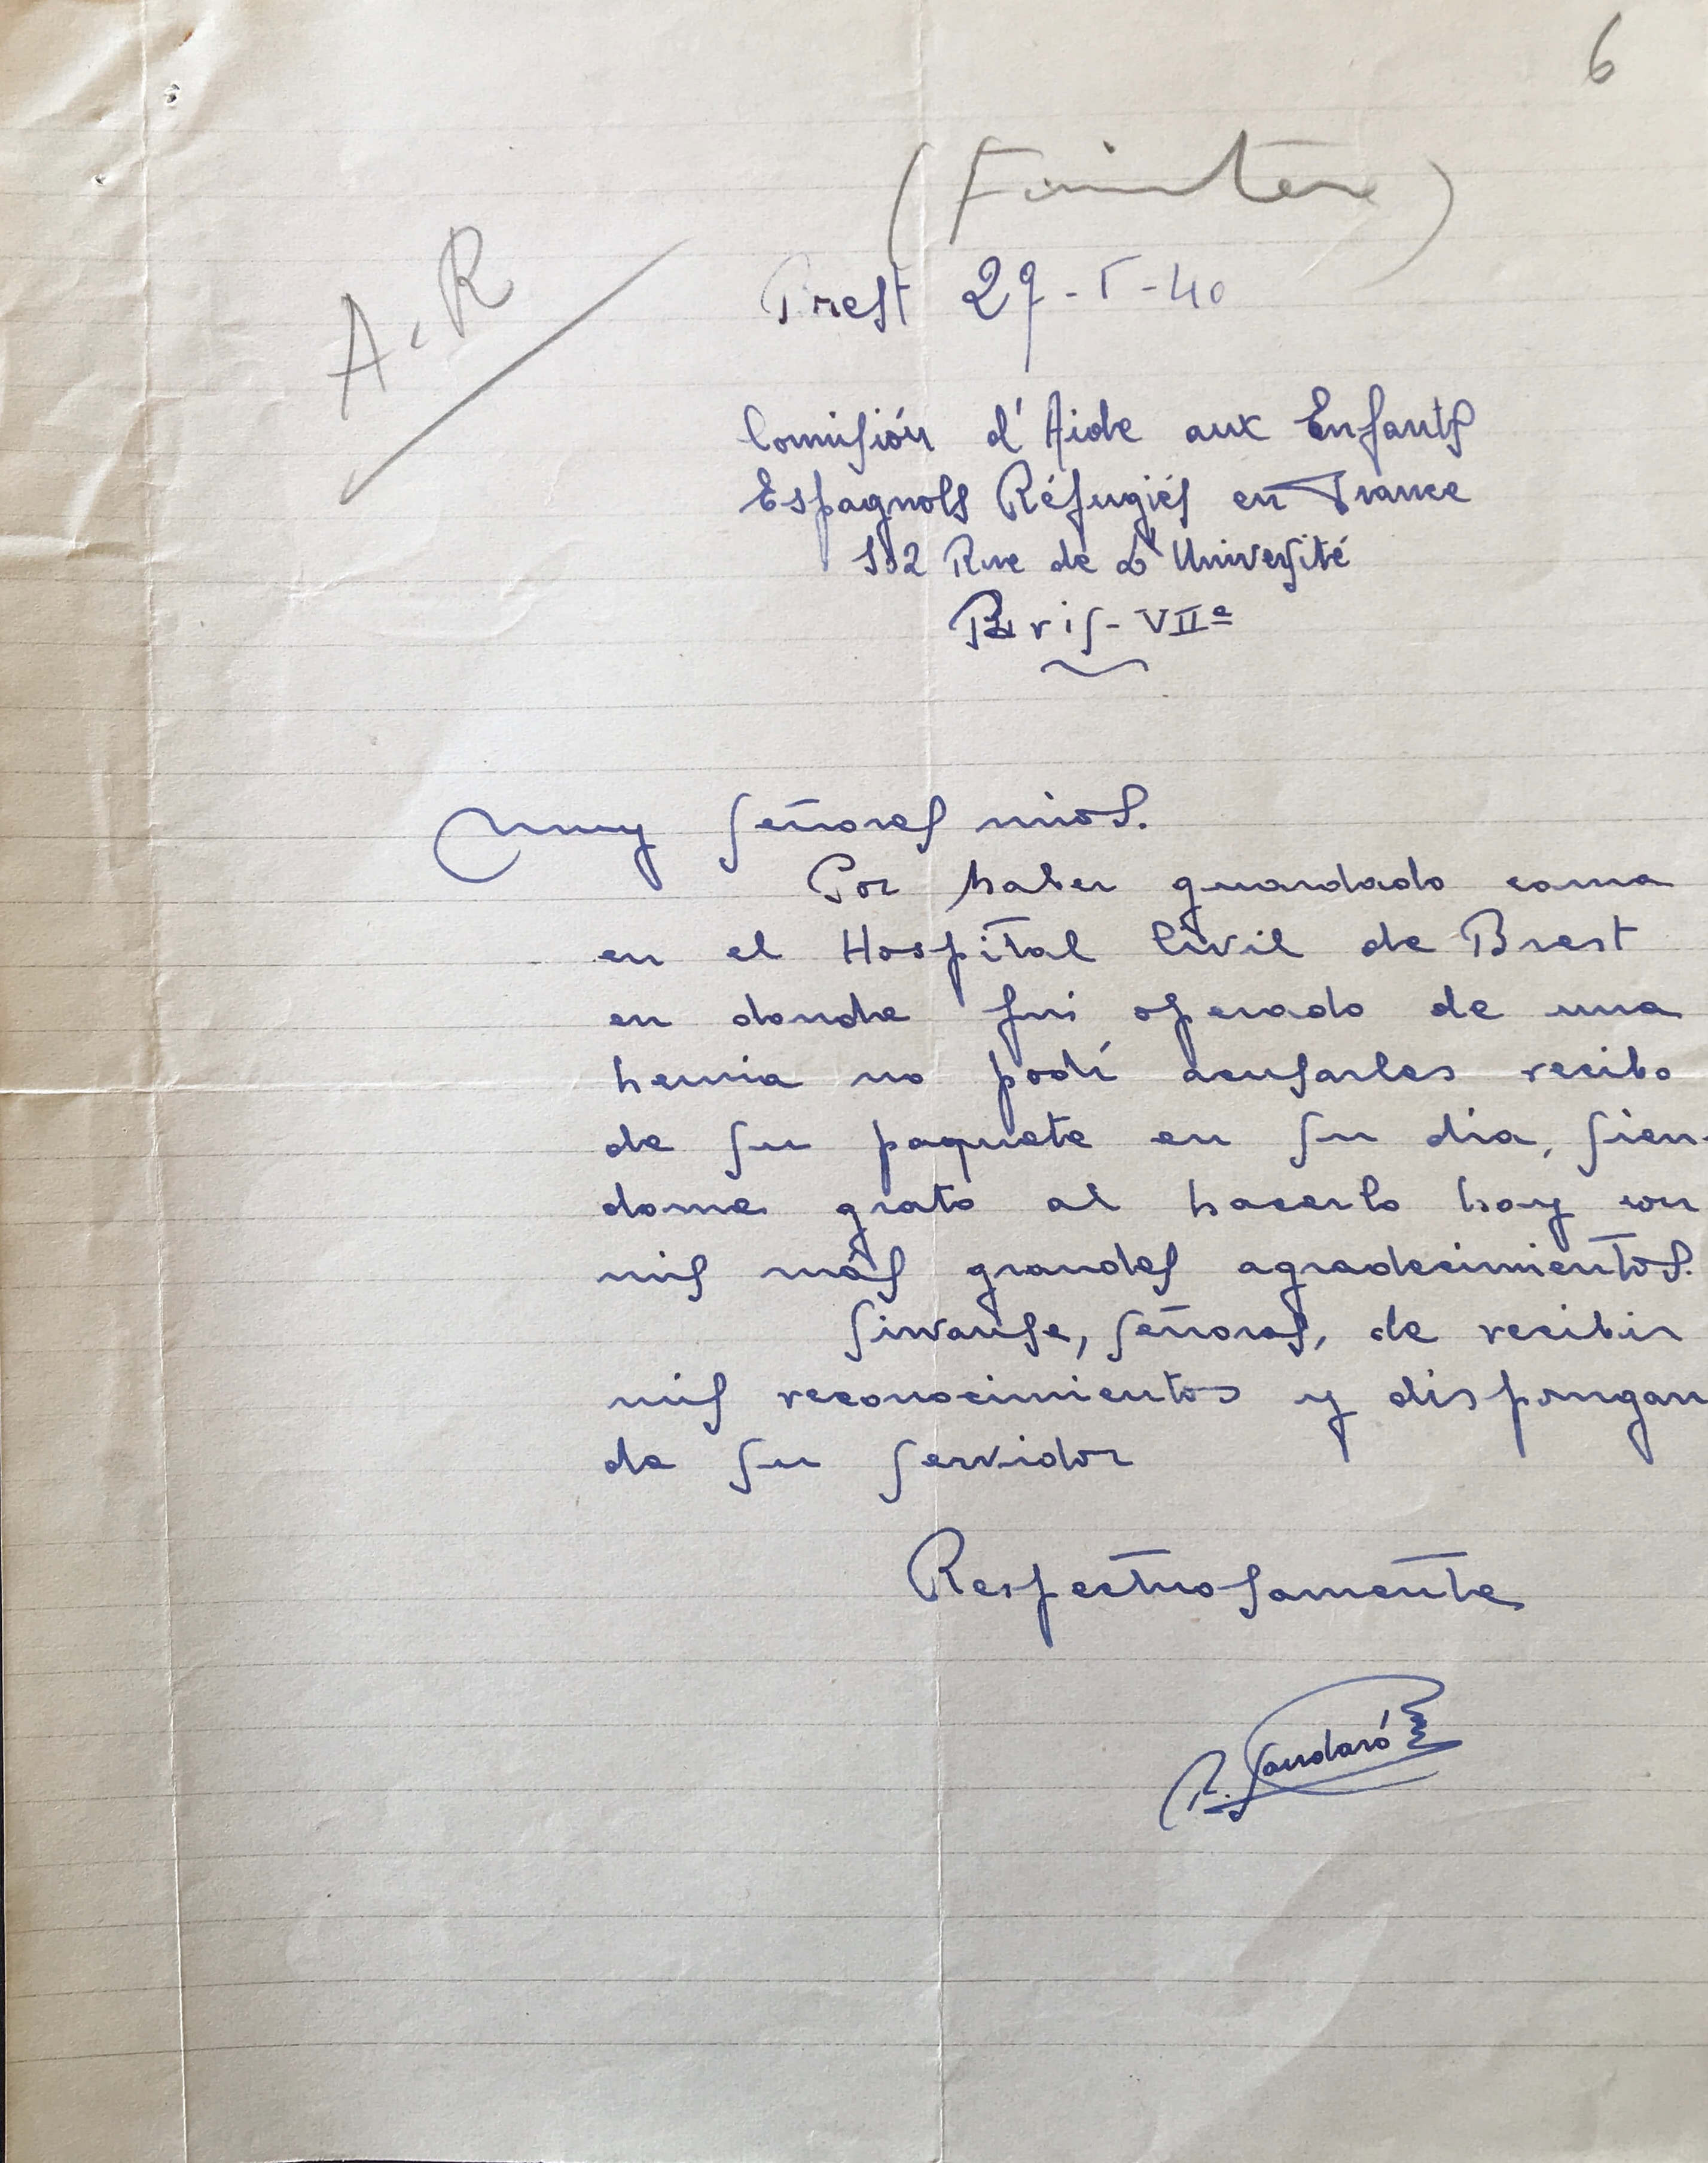 6
(Finistère)
A.R
Brest 27-I-40
Comisión d'Aide aux Enfants
Espagnols Réfugiés en France
182 Rue de L'Université
Paris-VIIe
Muy señores mios.
Por haber guardado cama
en el Hospital Civil de Brest
en donde fui operado de una
hernia no podí acusarles recibo
de su paquete en su dia, sien-
dome grato al hacerlo hoy con
mis más grandes agradecimientos.
Sirvanse, señores, de recibir
mis reconocimientos y dispongan
de su servidor
Respectuosamente
R.